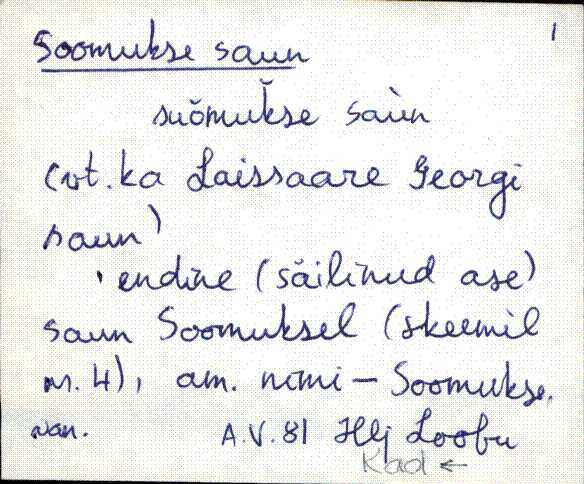 1
Soomukse saun
suŏmuk̆se saùn
(vt. ka Laissaare Georgi
saun)
endine (säilinud ase)
saun Soomuksel (skeemil
nr. 4), am. nimi – Soomukse
van. A.V. 81 Hlj Loobu
Kad ←